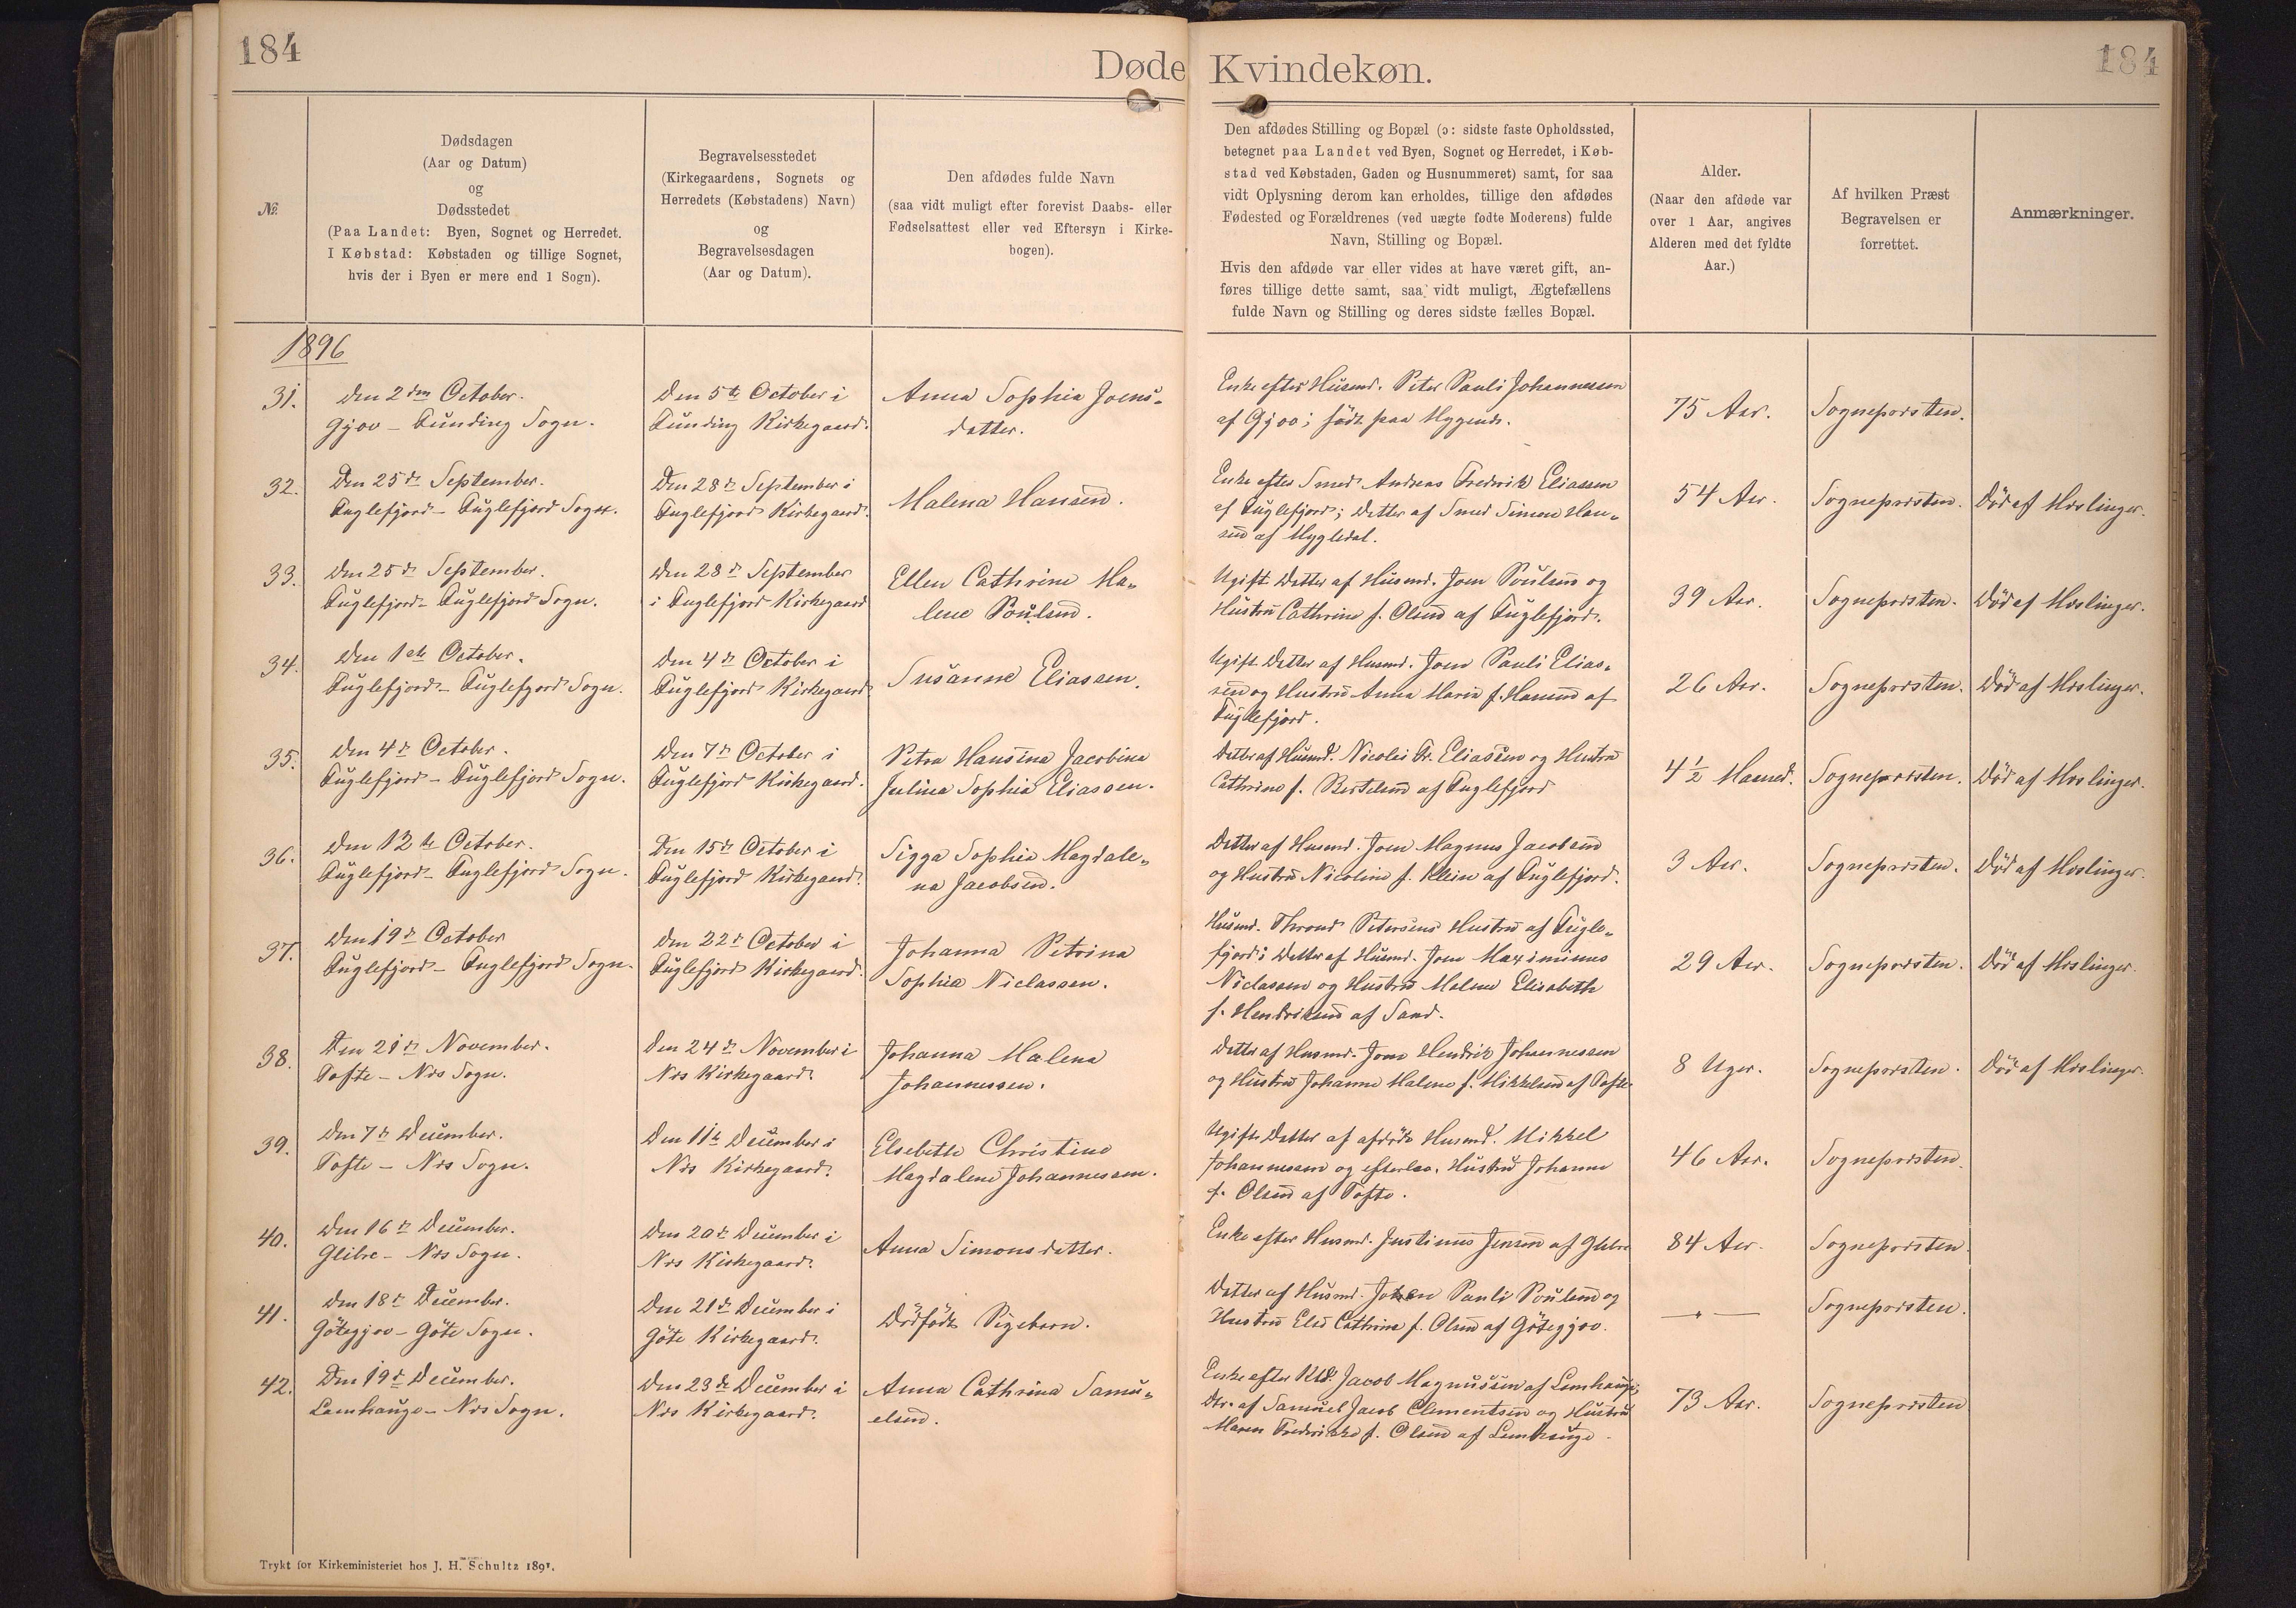 184
Døde Kvindekøn.
184
№
Dødsdagen
(Aar og Datum)
og
Dødsstedet
(Paa Landet: Byen, Sognet og Herredet.
I Købstad: Købstaden og tillige Sognet,
hvis der i Byen er mere end 1 Sogn).
Begravelsesstedet
(Kirkegaardens, Sognets og
Herredets (Købstadens) Navn)
og
Begravelsesdagen
(Aar og Datum).
Den afdødes fulde Navn
(saa vidt muligt efter forevist Daabs- eller
Fødselsattest eller ved Eftersyn i Kirke-
bogen).
Den afdødes Stilling og Bopæl (ɔ: sidste faste Opholdssted,
betegnet paa Landet ved Byen, Sognet og Herredet, i Køb-
stad ved Købstaden, Gaden og Husnummeret) samt, for saa
vidt Oplysning derom kan erholdes, tillige den afdødes
Fødested og Forældrenes (ved uægte fødte Moderens) fulde
Navn, Stilling og Bopæl.
Hvis den afdøde var eller vides at have været gift, an-
føres tillige dette samt, saa vidt muligt, Ægtefællens
fulde Navn og Stilling og deres sidste fælles Bopæl.
Alder.
(Naar den afdøde var
over 1 Aar, angives
Alderen med det fyldte
Aar.)
Af hvilken Præst
Begravelsen er
forrettet.
Anmærkninger.
1896
31.
Den 2den October.
Gjov – Funding Sogn.
Den 5te October i
Funding Kirkegaard.
Anna Sophia Joens-
datter.
Enke efter Husmd. Peter Pauli Johannessen
af Gjov; født paa Myggenæs.
75 Aar.
Sognepræsten.
32.
Den 25de September.
Fuglefjord – Fuglefjord Sogn.
Den 28de September i
Fuglefjord Kirkegaard.
Malena Hansen.
Enke efter Smed Andreas Frederik Eliassen
af Fuglefjord; Datter af Smed Simon Han-
sen af Mygledal.
54 Aar.
Sognepræsten.
Død af Mæslinger.
33.
Den 25de September.
Fuglefjord – Fuglefjord Sogn.
Den 28de September
i Fuglefjord Kirkegaard
Ellen Cathrine Ma-
lene Poulsen.
Ugift Datter af Husmd. Joen Poulsen og
Hustru Cathrine f. Olsen af Fuglefjord.
39 Aar.
Sognepræsten.
Død af Mæslinger.
34.
Den 1ste October.
Fuglefjord – Fuglefjord Sogn.
Den 4de October i
Fuglefjord Kirkegaard
Susanne Eliassen.
Ugift Datter af Husmd. Joen Pauli Elias-
sen og Hustru Anna Maria f. Hansen af
Fuglefjord.
26 Aar.
Sognepræsten.
Død af Mæslinger.
35.
Den 4de October.
Fuglefjord – Fuglefjord Sogn.
Den 7de October i
Fuglefjord Kirkegaard.
Petra Hansina Jacobina
Julina Sophia Eliassen.
Datter af Husmd. Nicolai Fr. Eliassen og Hustru
Cathrine f. Bertelsen af Fuglefjord
4½ Maaned.
Sognepræsten.
Død af Mæslinger.
36.
Den 12te October.
Fuglefjord – Fuglefjord Sogn.
Den 15de October i
Fuglefjord Kirkegaard.
Sigga Sophia Magdale-
na Jacobsen.
Datter af Husmd. Joen Magnus Jacobsen
og Hustru Nicoline f. Klein af Fuglefjord.
3 Aar.
Sognepræsten.
Død af Mæslinger.
37.
Den 19de October
Fuglefjord – Fuglefjord Sogn.
Den 22de October i
Fuglefjord Kirkegaard.
Johanna Petrina
Sophia Niclassen.
Husmd. Thrond Petersens Hustru af Fugle-
fjord; Datter af Husmd. Joen Maximinus
Niclassen og Hustru Malene Elisabeth
f. Hendriksen af Sand.
29 Aar.
Sognepræsten.
Død af Mæslinger.
38.
Den 21de November.
Tofte – Næs Sogn.
Den 24de November i
Næs Kirkegaard.
Johanna Malena
Johannessen.
Datter af Husmd. Joen Hendrik Johannessen
og Hustru Johanne Malene f. Mikkelsen af Tofte.
8 Uger.
Sognepræsten.
Død af Mæslinger.
39.
Den 7de December.
Tofte – Næs Sogn.
Den 11te December i
Næs Kirkegaard.
Elsebeth Christine
Magdalene Johannessen.
Ugift Datter af afdøde Husmd. Mikkel
Johannessen og efterlev. Hustru Johanne
f. Olsen af Tofte.
46 Aar.
Sognepræsten.
40.
Den 16de December.
Glibre – Næs Sogn.
Den 20de December i
Næs Kirkegaard.
Anna Simonsdatter.
Enke efter Husmd. Justinus Jensen af Glibre
84 Aar.
Sognepræsten.
41.
Den 18de December.
Gøtegjov – Gøte Sogn.
Den 21de December i
Gøte Kirkegaard.
Dødfødt Pigebarn.
Datter af Husmd. Johan Pauli Poulsen og
Hustru Else Cathrine f. Olsen af Gøtegjov.
— —
Sognepræsten.
42.
Den 19de December.
Lamhauge – Næs Sogn.
Den 23de December i
Næs Kirkegaard.
Anna Cathrina Samu-
elsen.
Enke efter Jacob Magnussen af Lamhauge;
Dtr. af Samuel Jacob Clementsen og Hustru
Maren Frederikke f. Olsen af Lamhauge.
73 Aar.
Sognepræsten
Trykt for Kirkeministeriet hos J. H. Schultz 1891.